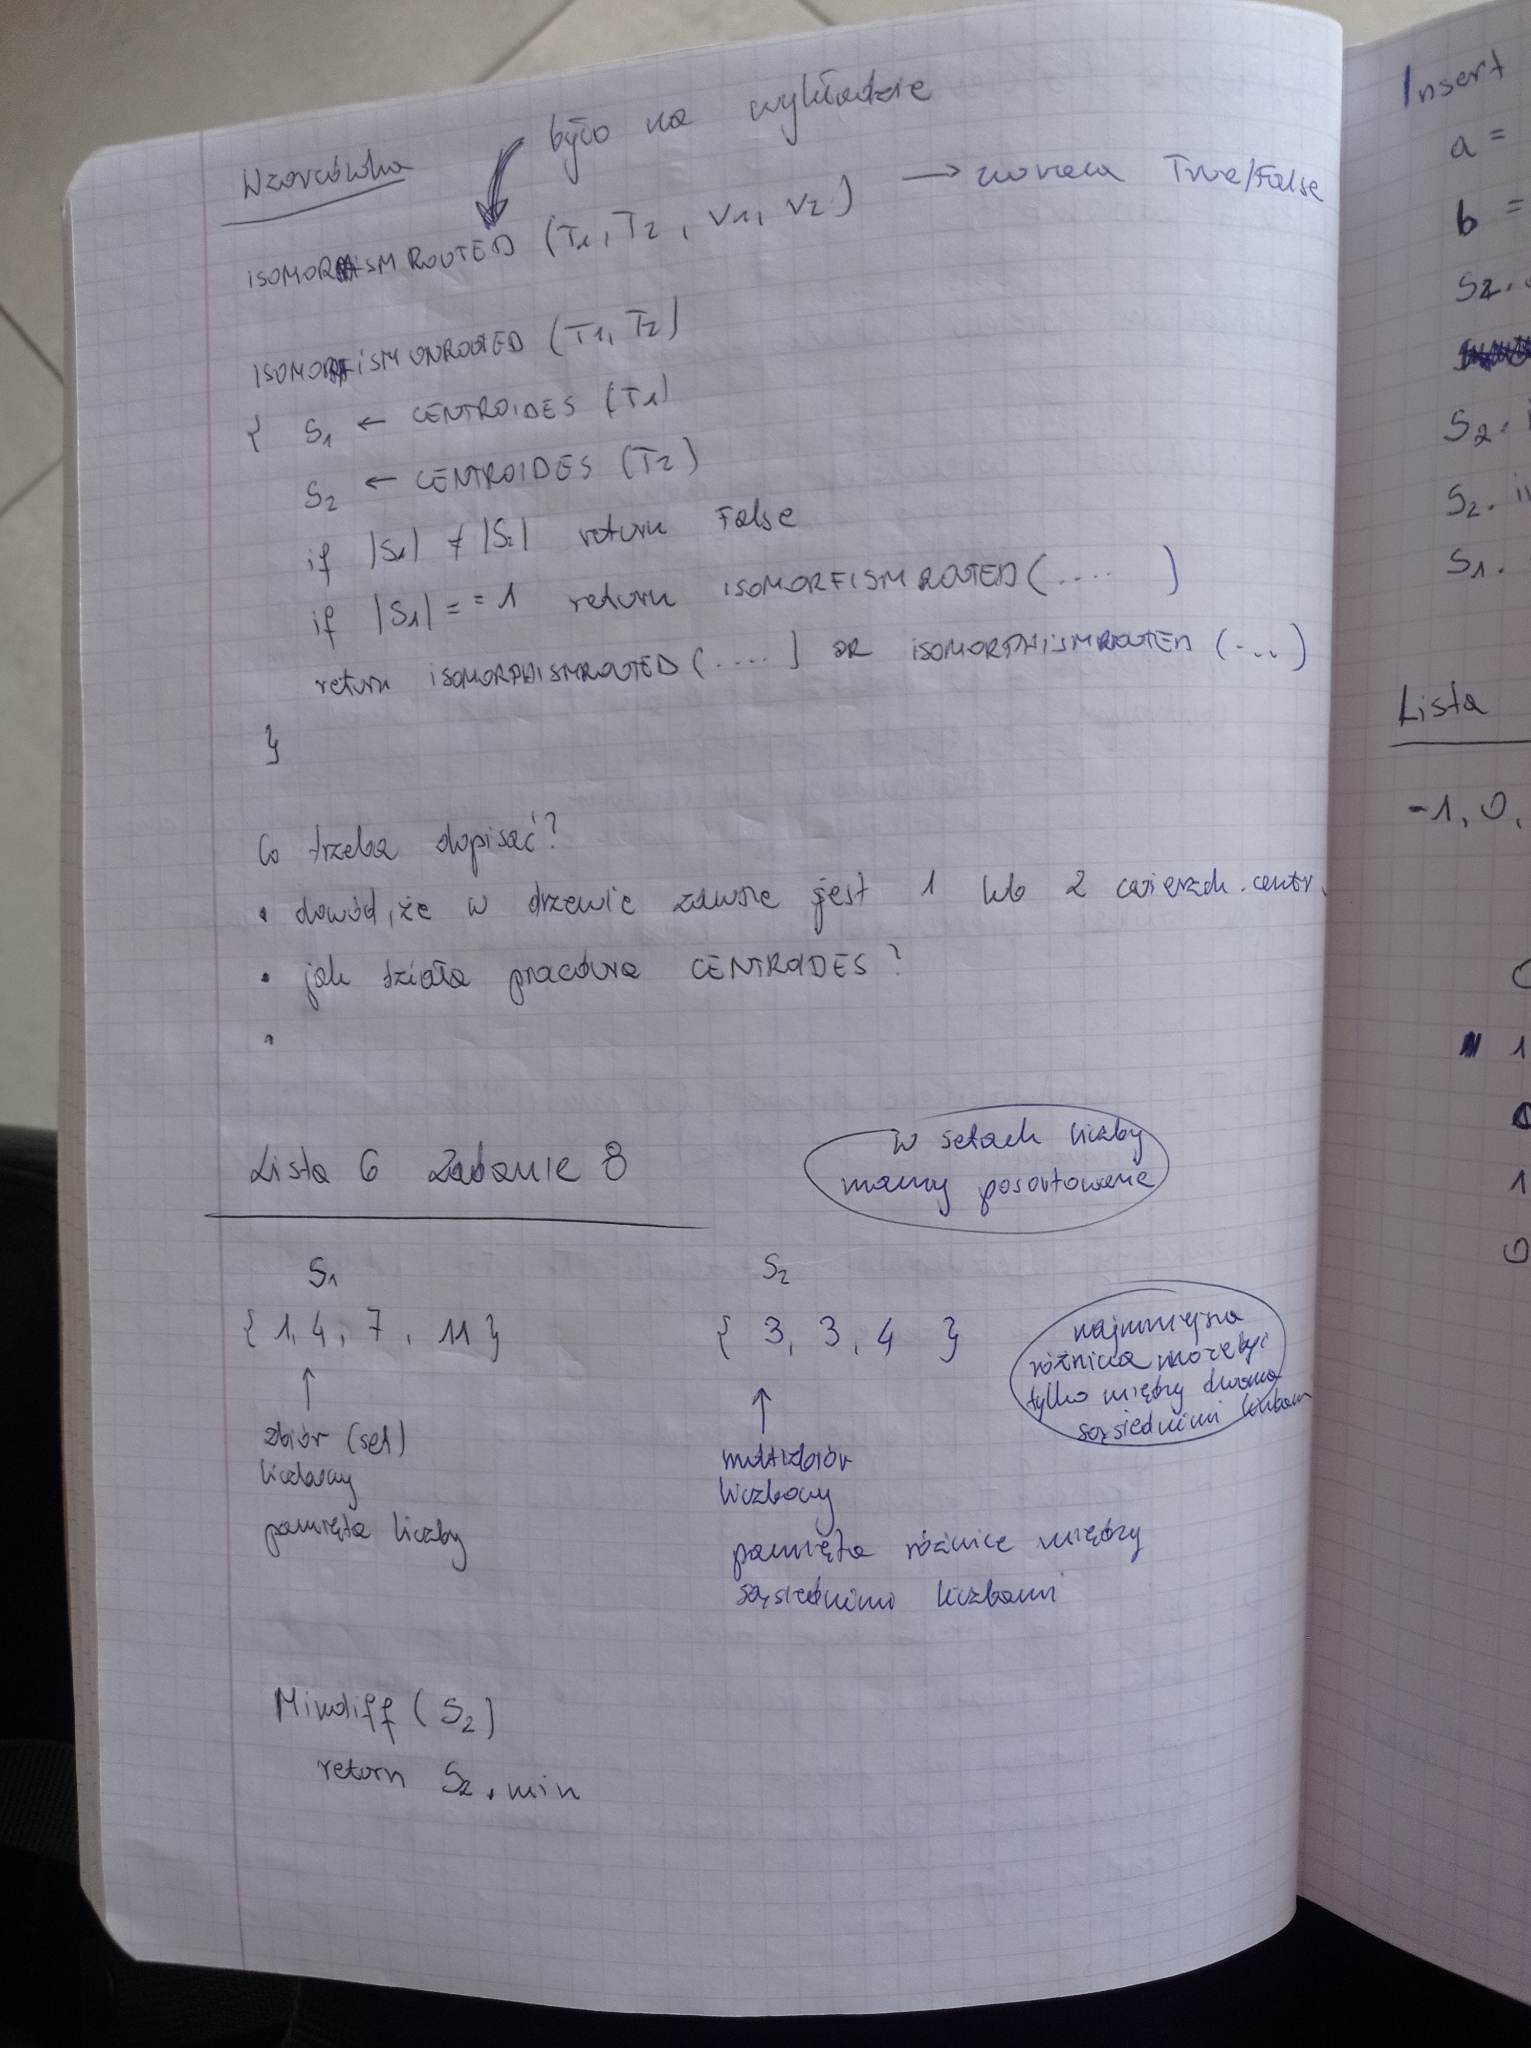 Wzorcówka
było na wykładzie
ISOMORFISMROOTED (T1, T2, V1, V2) → zwraca True/False
ISOMORFISMUNROOTED (T1, T2)
{ S1 ← CENTROIDES (T1)
S2 ← CENTROIDES (T2)
if |S1| ≠ |S2| return False
if |S1| == 1 return ISOMORFISMROOTED(.... )
return ISOMORPHISMROOTED(....) OR ISOMORPHISMROOTED (...)
}
Co trzeba dopisać?
• dowód, że w drzewie zawsze jest 1 lub 2 wierzch. centr.
• jak działa procedura CENTROIDES?
•
Lista 6 Zadanie 8
w setach liczby
mamy posortowane
S1
{ 1, 4, 7, 11 }
↑
zbiór (set)
liczbowy
pamięta liczby
S2
{ 3, 3, 4 }
↑
multizbiór
liczbowy
pamięta różnice między
sąsiednimi liczbami
najmniejsza
różnica może być
tylko między dwoma
sąsiednimi liczbami
Mindiff (S2)
return S2.min
Insert
a =
b =
S2.
S2. i
S2. i
S1.
Lista
-1, 0,
1
1
0